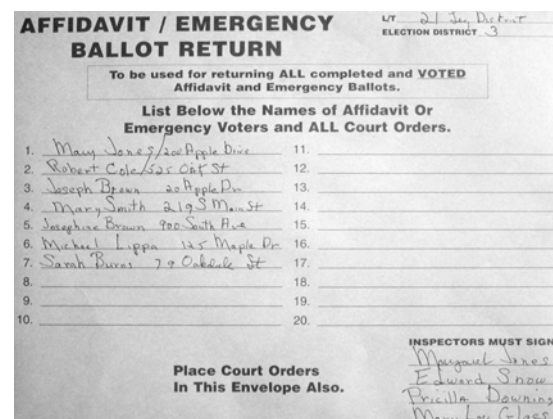 AFFIDAVIT / EMERGENCY
BALLOT RETURN
L/T 21 Leg District
ELECTION DISTRICT 3
To be used for returning ALL completed and VOTED
Affidavit and Emergency Ballots.
List Below the Names of Affidavit Or
Emergency Voters and ALL Court Orders.
1. Mary Jones/200 Apple Drive
2. Robert Cole/525 Oak St
3. Joseph Brown 20 Apple Dr
4. Mary Smith 219 S Main St
5. Josephine Brown 900 South Ave
6. Michael Lippa 125 Maple Dr
7. Sarah Burns 79 Oakdale St
8.
9.
10.
11.
12.
13.
14.
15.
16.
17.
18.
19.
20.
Place Court Orders
In This Envelope Also.
INSPECTORS MUST SIGN
Margaret Jones
Edward Snow
Pricilla Downing
Mary Lou Glass